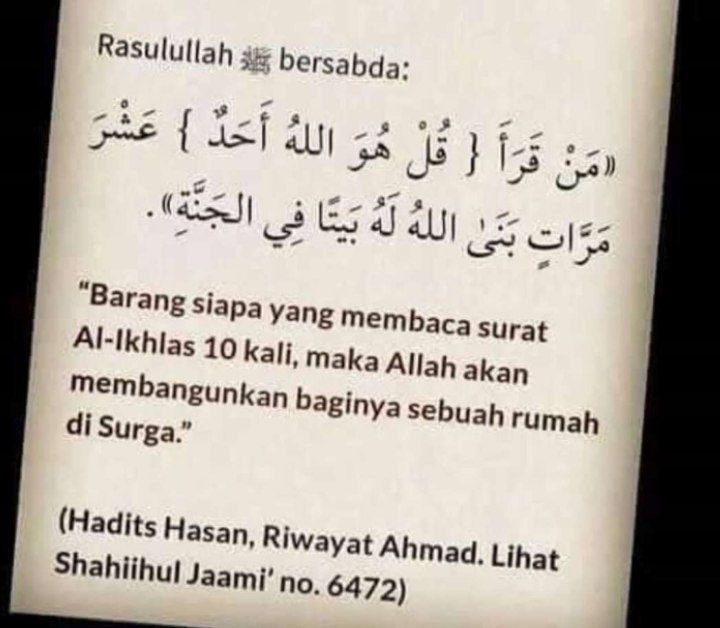 Rasulullah ﷺ bersabda:
«مَنْ قَرَأَ { قُلْ هُوَ اللهُ أَحَدٌ } عَشْرَ
مَرَّاتٍ بَنَىٰ اللهُ لَهُ بَيتًا فِي الجَنَّةِ».
“Barang siapa yang membaca surat
Al-Ikhlas 10 kali, maka Allah akan
membangunkan baginya sebuah rumah
di Surga.”
(Hadits Hasan, Riwayat Ahmad. Lihat
Shahiihul Jaami’ no. 6472)